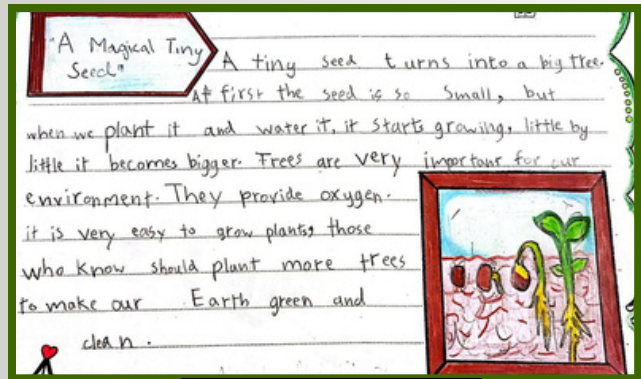 "A Magical Tiny
Seed"
A tiny seed turns into a big tree.
At first the seed is so small, but
when we plant it and water it, it starts growing, little by
little it becomes bigger. Trees are very important for our
environment. They provide oxygen.
it is very easy to grow plants, those
who know should plant more trees
to make our Earth green and
clean.